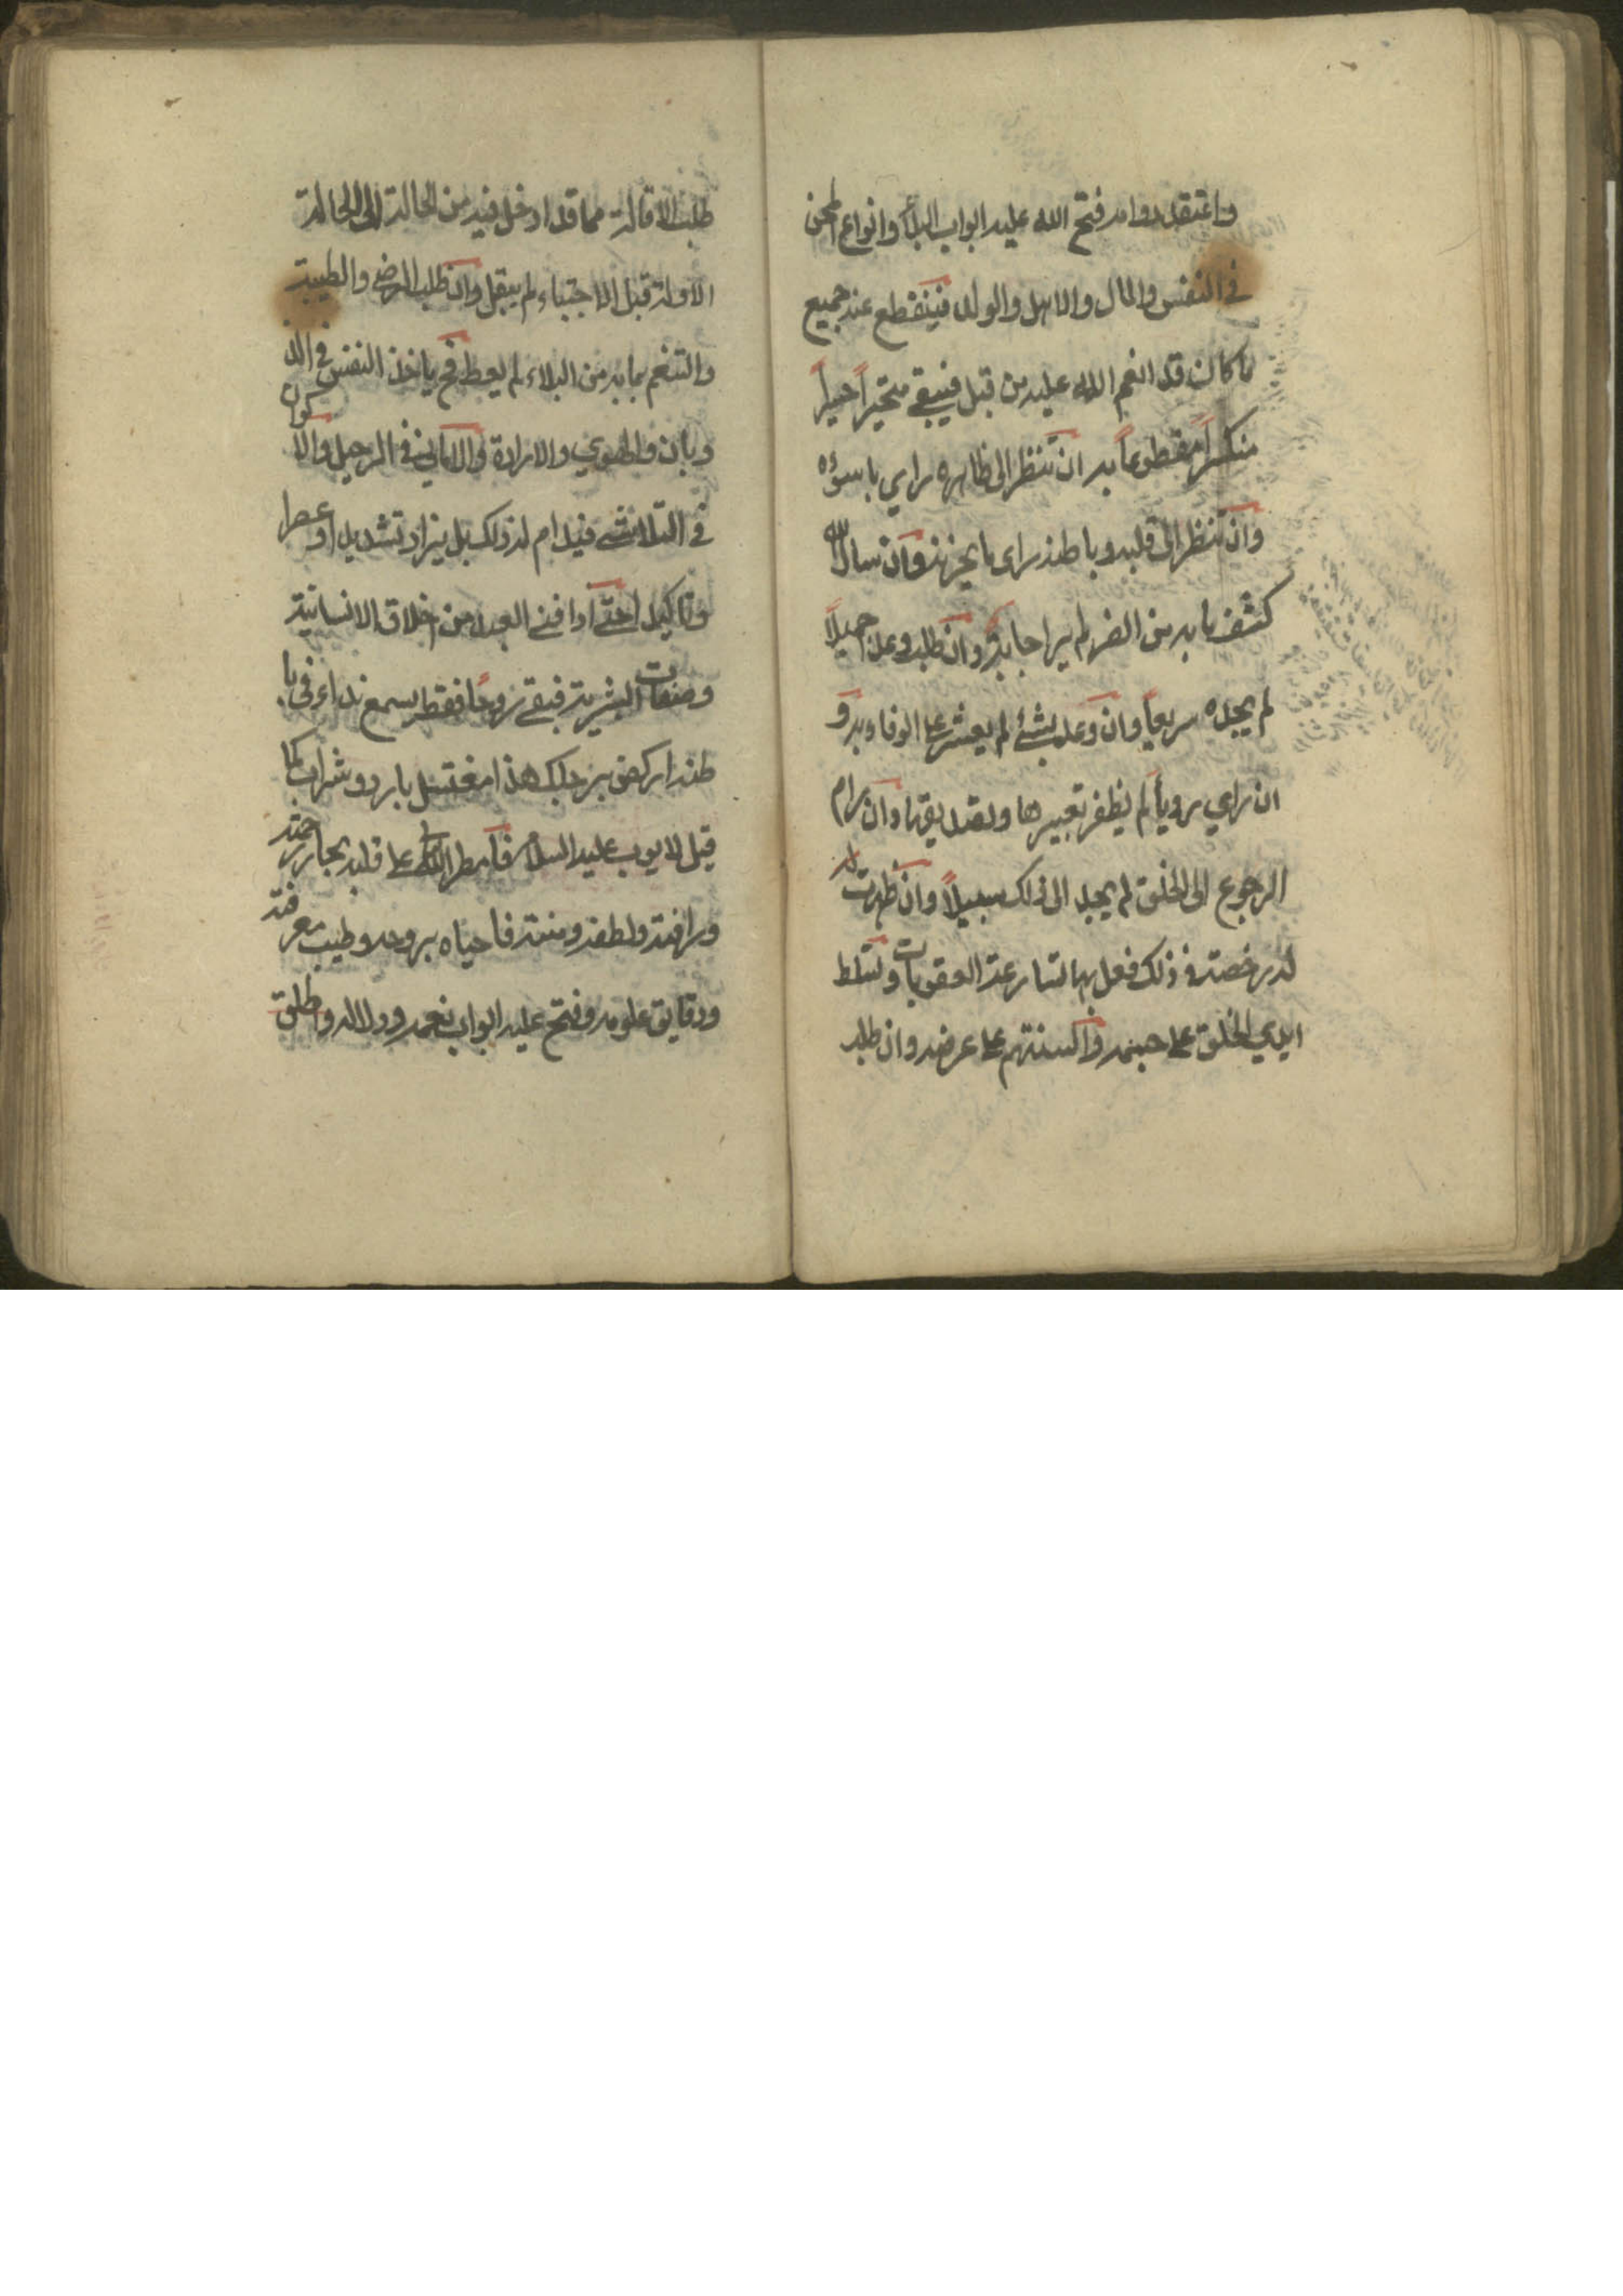 واعتقد دوامه فتح الله عليه ابواب البلاء وانواع المحن
في النفس والمال والاهل والولد فينقطع عنه جميع
ما كان قد انعم الله عليه من قبل فيبقى متحيراً حسيراً
منكسراً مقطوعاً به ان تنظر الى ظاهره راي ما سؤه
وان تنظر الى قلبه وباطنه راى ما يحزنه وان سال الله
كشف ما به من الضر لم ير اجابة وان طلب وعداً جميلاً
لم يجده سريعاً وان وعد بشئ لم يعثر على الوفاء به و
ان راي رويأ لم يظفر تعبيرها وتصديقها وان رام
الرجوع الى الخلق لم يجد الى ذلك سبيلاً وان ظهرت له
له رخصة في ذلك فعل بها تسارعة العقوبات وتسلط
ايدي الخلق على جسمه والسنتهم على عرضه وان طلب
طلب الاقالة مما قد ادخل فيه من الحالة الى الحالة
الاولة قبل الاجتباء لم يقبل وان طلب الرضى والطيبة
والتنعم بما به من البلاء لم يعط فح ياخذ النفس في الذ
وبان والهوي والارادة والاماني في الرحيل والا كوان
في التلاشى فيدام له ذلك بل يزاد تشديدا وعصرا
وتاكيدا حتى اذا فنى العبد من اخلاق الانسانية
وصفات البشرية فبقى روحاً فقط يسمع نداء في با
طنه اركض برجلك هذا مغتسل بارد وشراب كما
قيل لايوب عليه السلام فامطر الله على قلبه بحار رحمته
ورافته ولطفه ومنته فاحياه بروحه وطيب معرفته
ودقايق علومه وفتح عليه ابواب نعمه ودلاله واطلق